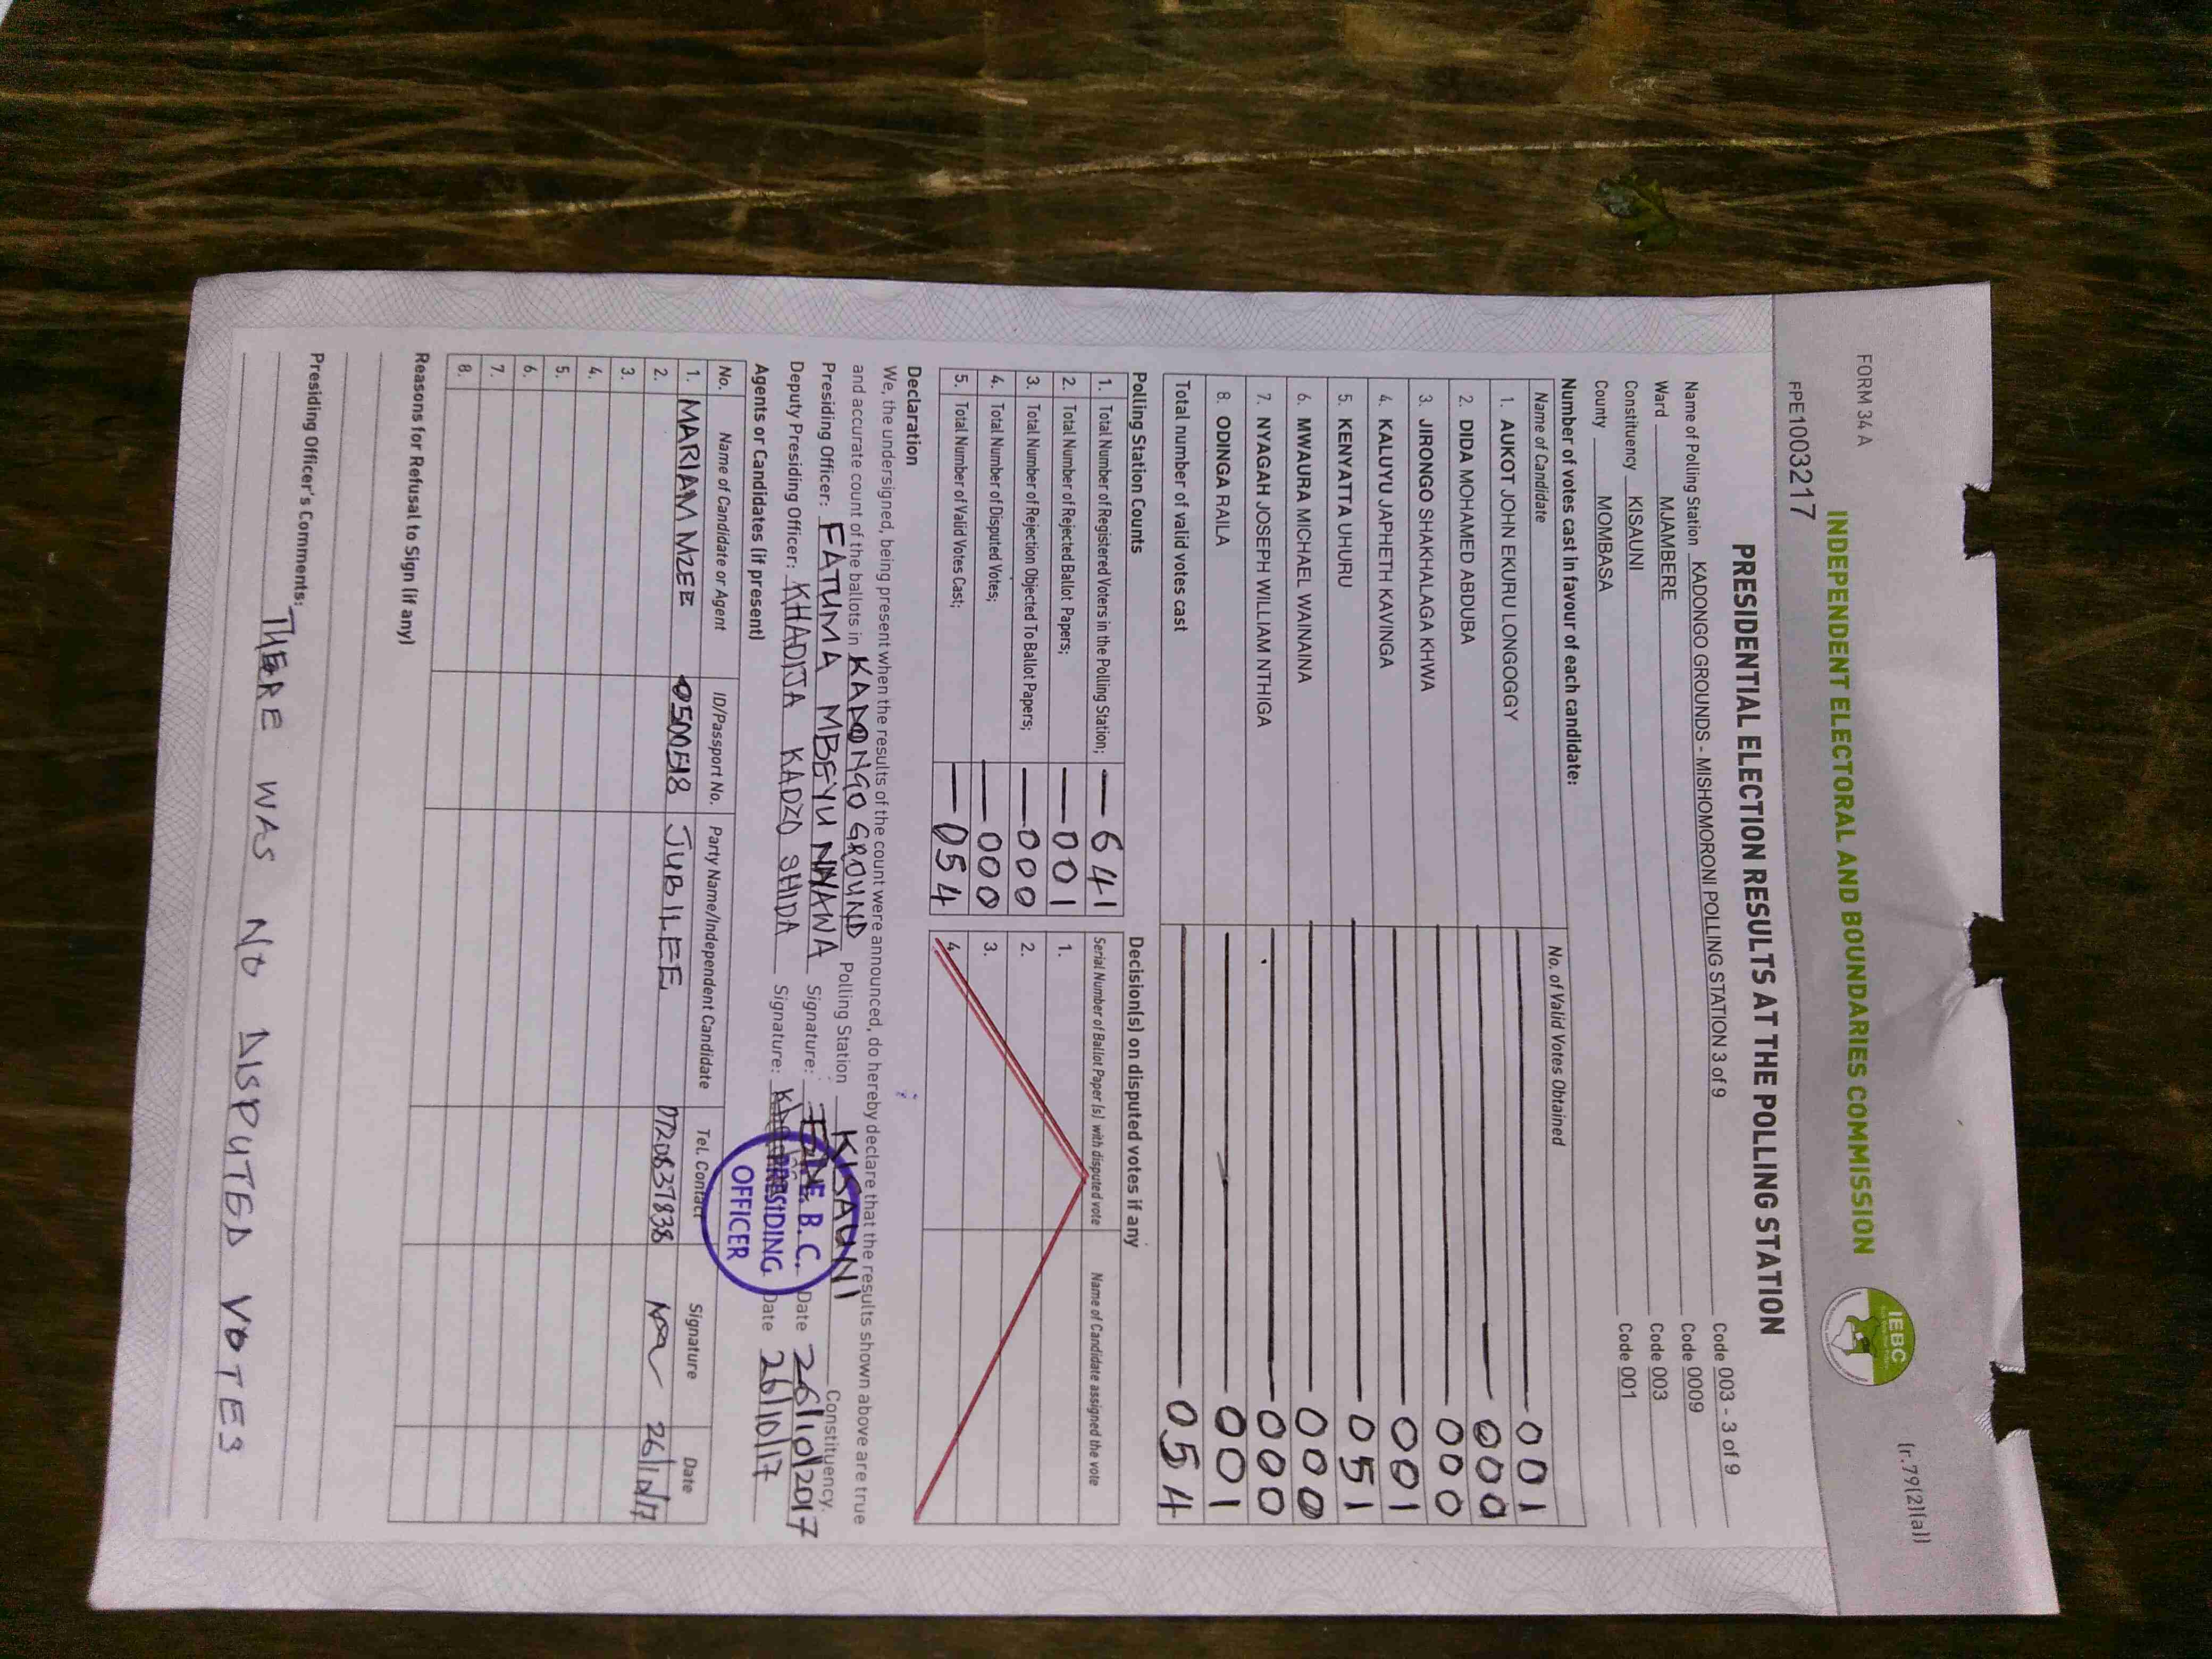 FORM 34 A
(r.79(2)(a))
INDEPENDENT ELECTORAL AND BOUNDARIES COMMISSION
IEBC
FPE1003217
PRESIDENTIAL ELECTION RESULTS AT THE POLLING STATION
Name of Polling Station KADONGO GROUNDS - MISHOMORONI POLLING STATION 3 of 9 Code 003 - 3 of 9
Ward MJAMBERE Code 0009
Constituency KISAUNI Code 003
County MOMBASA Code 001
Number of votes cast in favour of each candidate:
Name of Candidate No. of Valid Votes Obtained
1. AUKOT JOHN EKURU LONGOGGY 001
2. DIDA MOHAMED ABDUBA 000
3. JIRONGO SHAKHALAGA KHWA 000
4. KALUYU JAPHETH KAVINGA 001
5. KENYATTA UHURU 051
6. MWAURA MICHAEL WAINAINA 000
7. NYAGAH JOSEPH WILLIAM NTHIGA 000
8. ODINGA RAILA 001
Total number of valid votes cast 054
Polling Station Counts Decision(s) on disputed votes if any
1. Total Number of Registered Voters in the Polling Station; 641 Serial Number of Ballot Paper (s) with disputed vote Name of Candidate assigned the vote
2. Total Number of Rejected Ballot Papers; 001 1.
3. Total Number of Rejection Objected To Ballot Papers; 000 2.
4. Total Number of Disputed Votes; 000 3.
5. Total Number of Valid Votes Cast; 054 4.
Declaration
We, the undersigned, being present when the results of the count were announced, do hereby declare that the results shown above are true
and accurate count of the ballots in KADONGO GROUND Polling Station KISAUNI Constituency.
Presiding Officer: FATUMA MBEYU NYAWA Signature: Date 26/10/2017
Deputy Presiding Officer: KHADIJA KADZO SHIDA Signature: Date 26/10/17
I.E.B.C.
PRESIDING
OFFICER
Agents or Candidates (if present)
No. Name of Candidate or Agent ID/Passport No. Party Name/Independent Candidate Tel. Contact Signature Date
1. MARIAM MZEE 0500518 JUBILEE 0720837838 26/10/17
2.
3.
4.
5.
6.
7.
8.
Reasons for Refusal to Sign (if any)
Presiding Officer's Comments:
THERE WAS NO DISPUTED VOTES